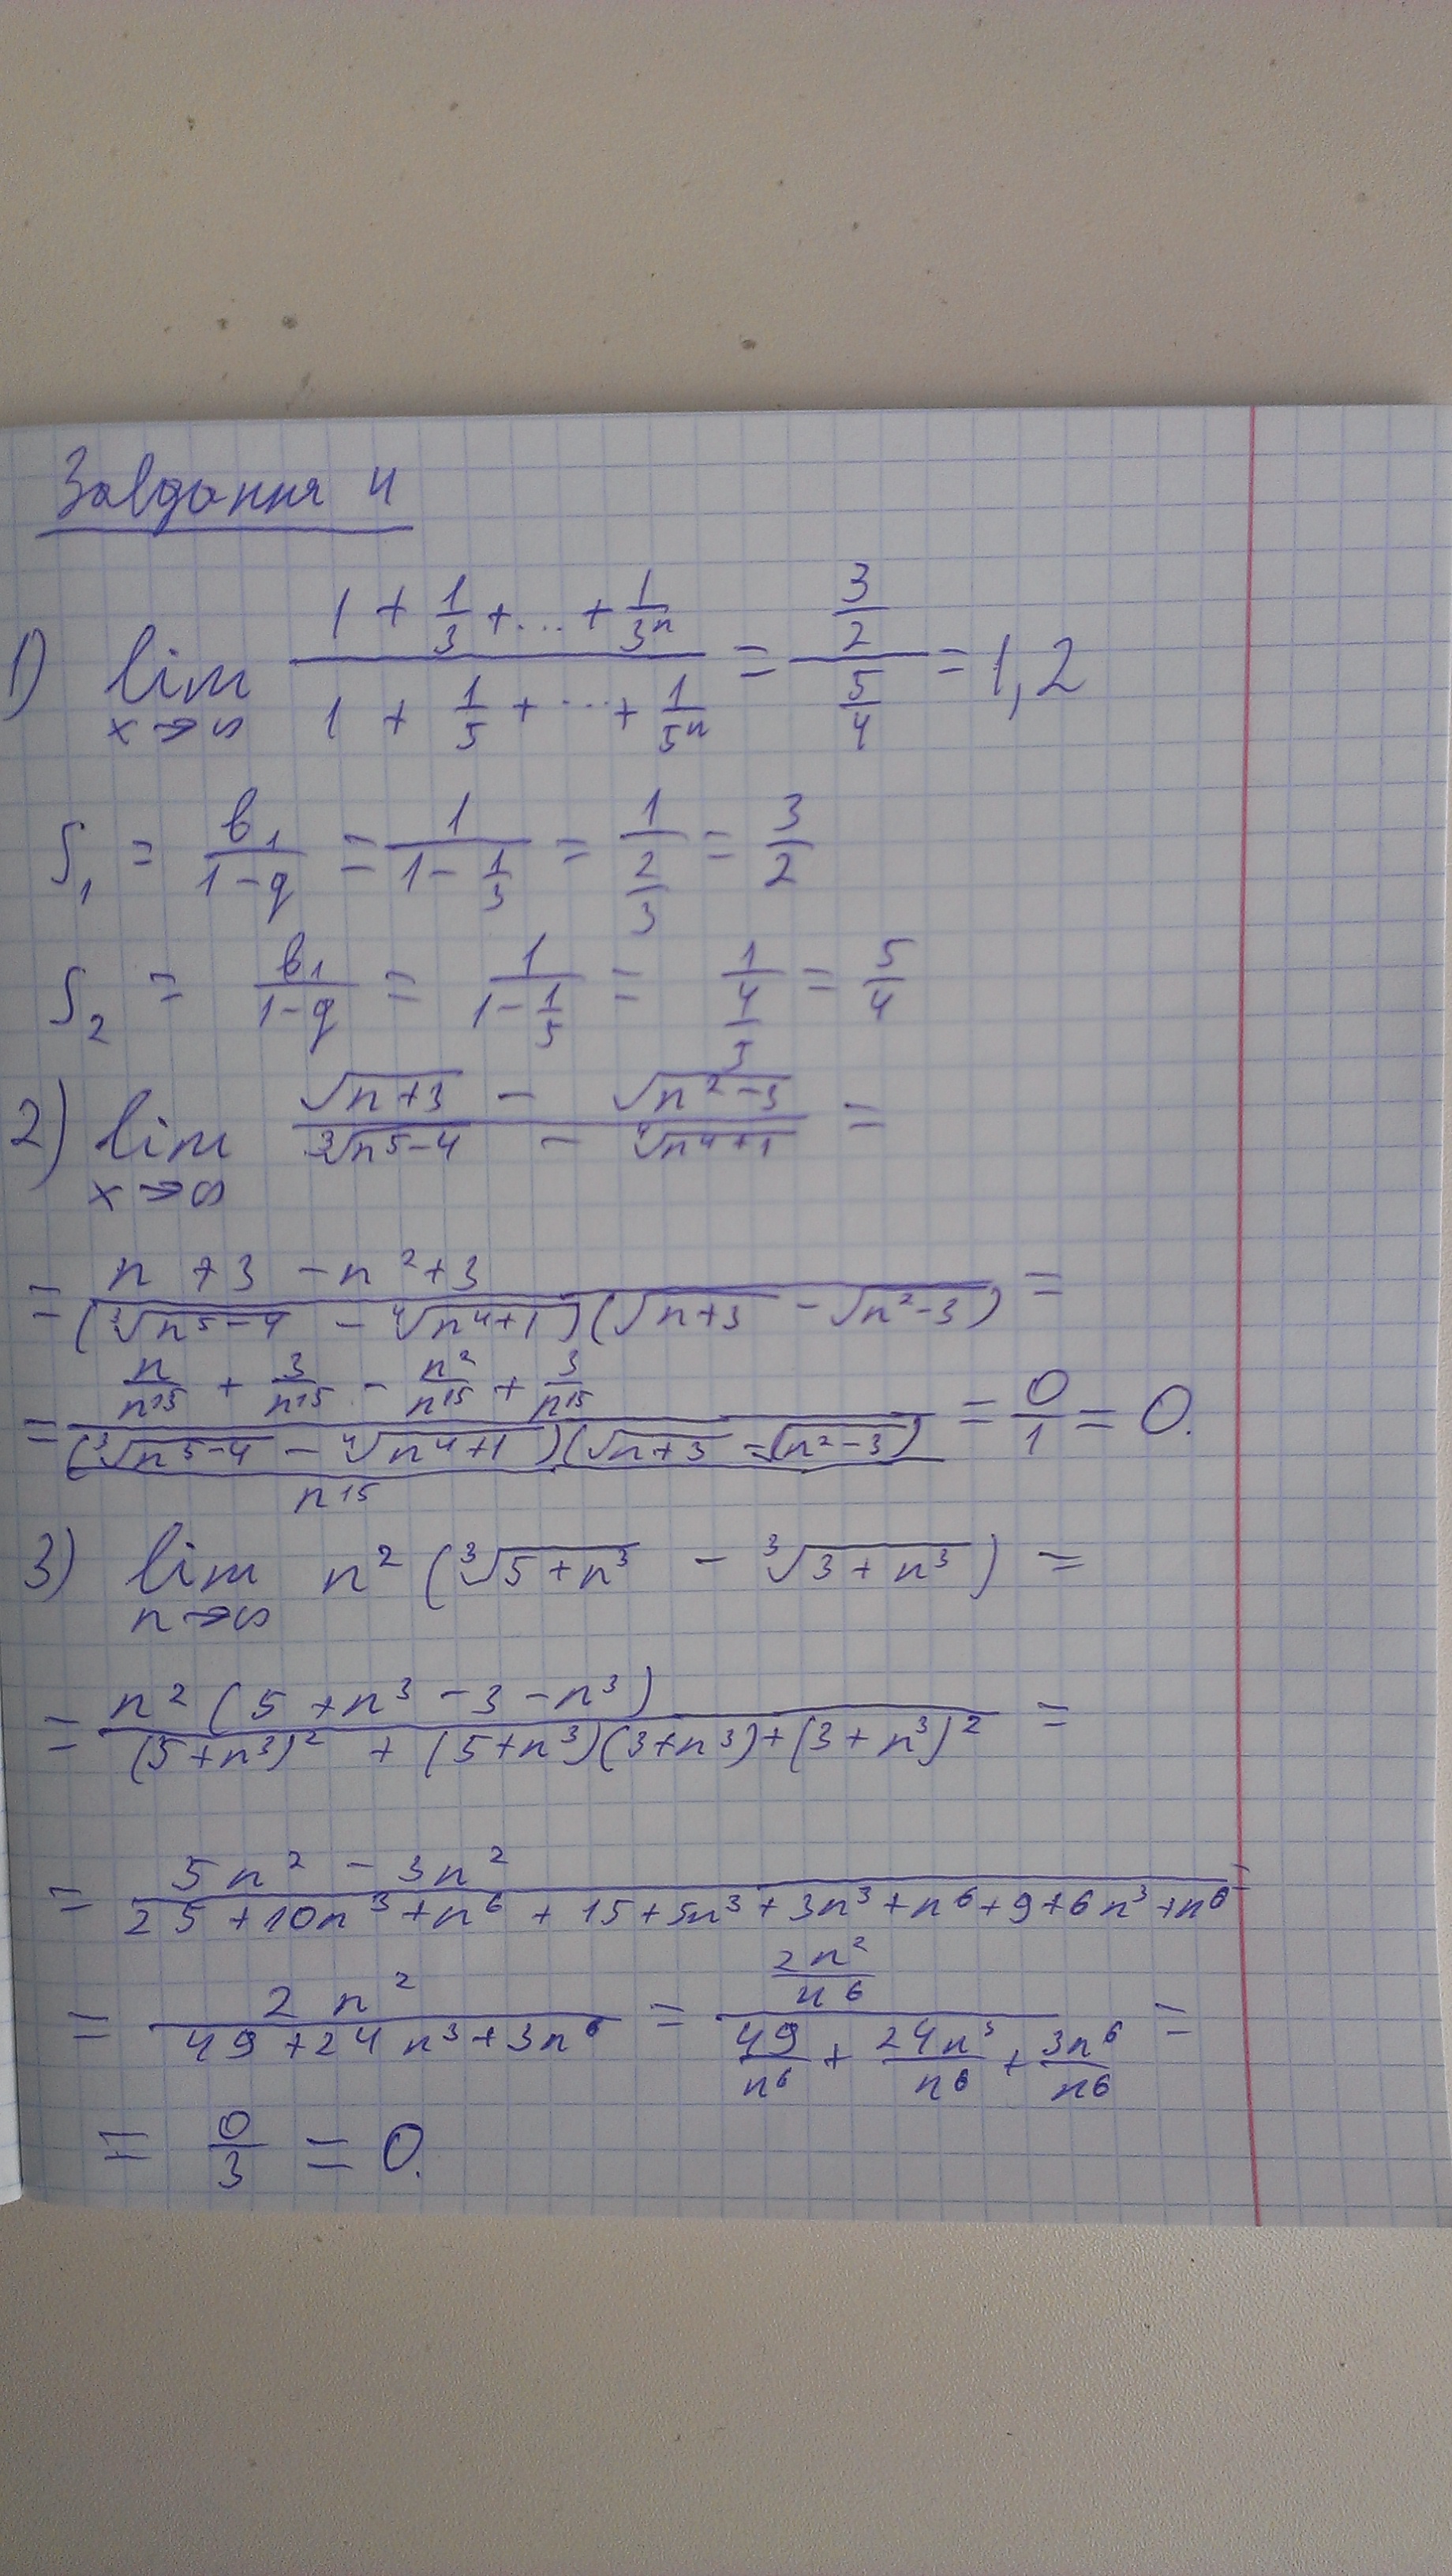 Завдання 4
1) lim x→∞ (1 + 1/3 + ... + 1/3ⁿ)/(1 + 1/5 + ... + 1/5ⁿ) = (3/2)/(5/4) = 1,2
S₁ = b₁/(1-q) = 1/(1 - 1/3) = 1/(2/3) = 3/2
S₂ = b₁/(1-q) = 1/(1 - 1/5) = 1/(4/5) = 5/4
2) lim x→∞ (√(n+3) - √(n²-3))/(³√(n⁵-4) - ⁴√(n⁴+1)) =
= (n + 3 - n² + 3)/((³√(n⁵-4) - ⁴√(n⁴+1))(√(n+3) - √(n²-3))) =
= (n/n¹⁵ + 3/n¹⁵ - n²/n¹⁵ + 3/n¹⁵)/((³√(n⁵-4) - ⁴√(n⁴+1))(√(n+3) - √(n²-3))/n¹⁵) = 0/1 = 0.
3) lim n→∞ n² (³√(5+n³) - ³√(3+n³)) =
= n² (5 + n³ - 3 - n³)/((5+n³)² + (5+n³)(3+n³) + (3+n³)²) =
= (5n² - 3n²)/(25 + 10n³ + n⁶ + 15 + 5n³ + 3n³ + n⁶ + 9 + 6n³ + n⁶) =
= 2n²/(49 + 24n³ + 3n⁶) = (2n²/n⁶)/(49/n⁶ + 24n³/n⁶ + 3n⁶/n⁶) =
= 0/3 = 0.